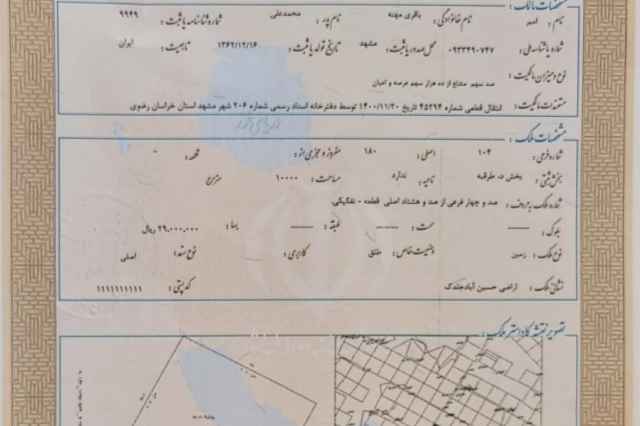 مشخصات مالک :
نام : امیر نام خانوادگی : باقری مهنه نام پدر : محمدعلی شماره شناسنامه یا ثبت : ۹۹۴۹
شماره یا شناسه ملی : ۰۹۳۳۴۹۰۷۴۷ محل صدور یا ثبت : مشهد تاریخ تولد یا ثبت : ۱۳۶۲/۱۲/۱۶ تابعیت : ایران
نوع و میزان مالکیت : صد سهم مشاع از ده هزار سهم عرصه و اعیان
مستندات مالکیت : انتقال قطعی شماره ۴۵۲۹۴ تاریخ ۱۴۰۰/۱۱/۲۰ توسط دفترخانه اسناد رسمی شماره ۲۰۶ شهر مشهد استان خراسان رضوی
مشخصات ملک :
شماره فرعی : ۱۰۴ اصلی : ۱۸۰ مفروز و مجزی از : - قطعه : -
بخش ثبتی : بخش ده طرقبه ناحیه : ندارد مساحت : ۱۰۰۰۰ متر مربع
شماره ملک به حروف : صد و چهار فرعی از صد و هشتاد اصلی قطعه - تفکیکی،
بلوک : سمت : طبقه : بها : ۲۹.۰۰۰.۰۰۰ ریال
نوع ملک : زمین وضعیت خاص : مطلق کاربری : نوع سند : اصلی
نشانی ملک : اراضی حسین آباد جلدک کد پستی : ۱۱۱۱۱۱۱۱۱۱
تصویر نقشه کاداستر ملک :